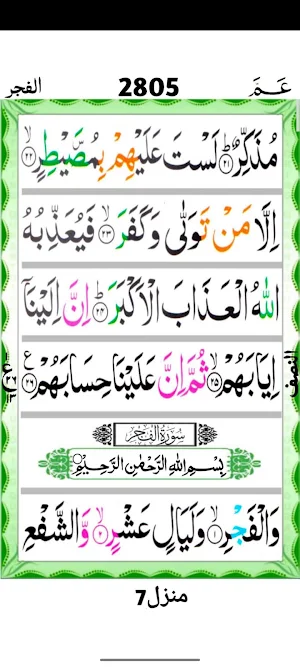 الفجر 2805 عَمَّ
مُذَكِّرٌ ؕ﴿۲۱﴾ لَسْتَ عَلَيْهِمْ بِمُصَۜيْطِرٍ ۙ﴿۲۲﴾
اِلَّا مَنْ تَوَلّٰى وَكَفَرَ ۙ﴿۲۳﴾ فَيُعَذِّبُهُ
اللّٰهُ الْعَذَابَ الْاَكْبَرَ ؕ﴿۲۴﴾ اِنَّ اِلَيْنَاۤ
اِيَابَهُمْ ۙ﴿۲۵﴾ ثُمَّ اِنَّ عَلَيْنَا حِسَابَهُمْ ﴿۲۶﴾
النصف
سُوْرَةُ الْفَجْرِ
بِسْمِ اللّٰهِ الرَّحْمٰنِ الرَّحِيْمِ
وَالْفَجْرِ ۙ﴿۱﴾ وَلَيَالٍ عَشْرٍ ۙ﴿۲﴾ وَّالشَّفْعِ
منزل7